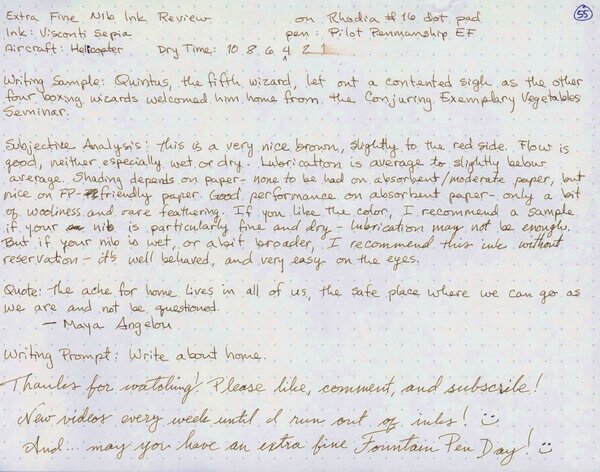 Extra Fine Nib Ink Review on Rhodia #16 dot pad 55
Ink: Visconti Sepia pen: Pilot Penmanship EF
Aircraft: Helicopter Dry Time: 10 8 6 4 2 1
Writing Sample: Quintus, the fifth wizard, let out a contented sigh as the other
four boxing wizards welcomed him home from the Conjuring Exemplary Vegetables
Seminar.
Subjective Analysis: This is a very nice brown, slightly to the red side. Flow is
good, neither especially wet or dry. Lubrication is average to slightly below
average. Shading depends on paper - none to be had on absorbent/moderate paper, but
nice on FP-friendly paper. Good performance on absorbent paper - only a bit
of wooliness and rare feathering. If you like the color, I recommend a sample
if your nib is particularly fine and dry - lubrication may not be enough.
But if your nib is wet, or a bit broader, I recommend this ink without
reservation - it's well behaved, and very easy on the eyes.
Quote: The ache for home lives in all of us, the safe place where we can go as
we are and not be questioned.
— Maya Angelou
Writing Prompt: Write about home.
Thanks for watching! Please like, comment, and subscribe!
New videos every week until I run out of inks!
And... may you have an extra fine Fountain Pen Day!